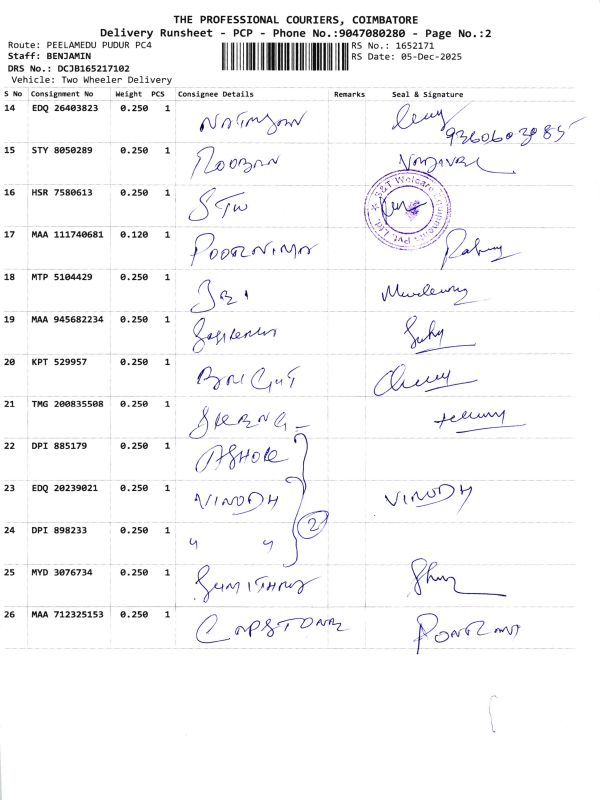 THE PROFESSIONAL COURIERS, COIMBATORE
Delivery Runsheet - PCP - Phone No.:9047080280 - Page No.:2
Route: PEELAMEDU PUDUR PC4 RS No.: 1652171
Staff: BENJAMIN RS Date: 05-Dec-2025
DRS No.: DCJB165217102
Vehicle: Two Wheeler Delivery
S No Consignment No Weight PCS Consignee Details Remarks Seal & Signature
14 EDQ 26403823 0.250 1
15 STY 8050289 0.250 1 ROOBAN
16 HSR 7580613 0.250 1 S&T Welcare Equipments Pvt. Ltd.
17 MAA 111740681 0.120 1 POORNIMA
18 MTP 5104429 0.250 1
19 MAA 945682234 0.250 1
20 KPT 529957 0.250 1
21 TMG 200835508 0.250 1
22 DPI 885179 0.250 1 ASHOK
23 EDQ 20239021 0.250 1 VINODH VINODH
24 DPI 898233 0.250 1 " " 2
25 MYD 3076734 0.250 1
26 MAA 712325153 0.250 1 CAPSTONE